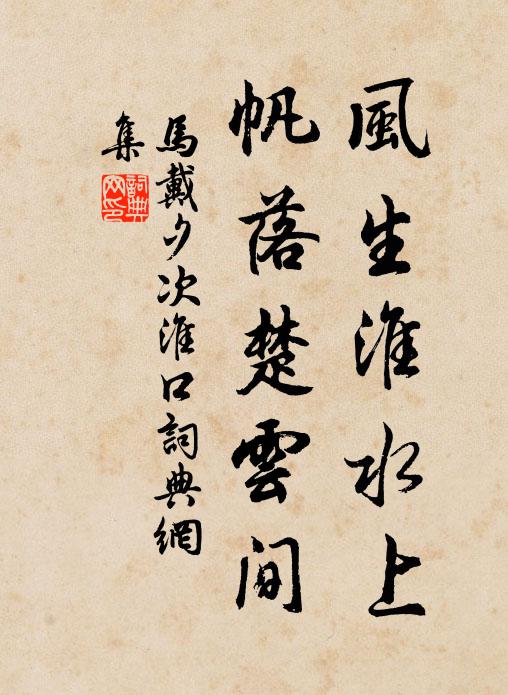 風生淮水上
帆落楚雲間
馬戴夕次淮口詞典網
集
詞典
网印